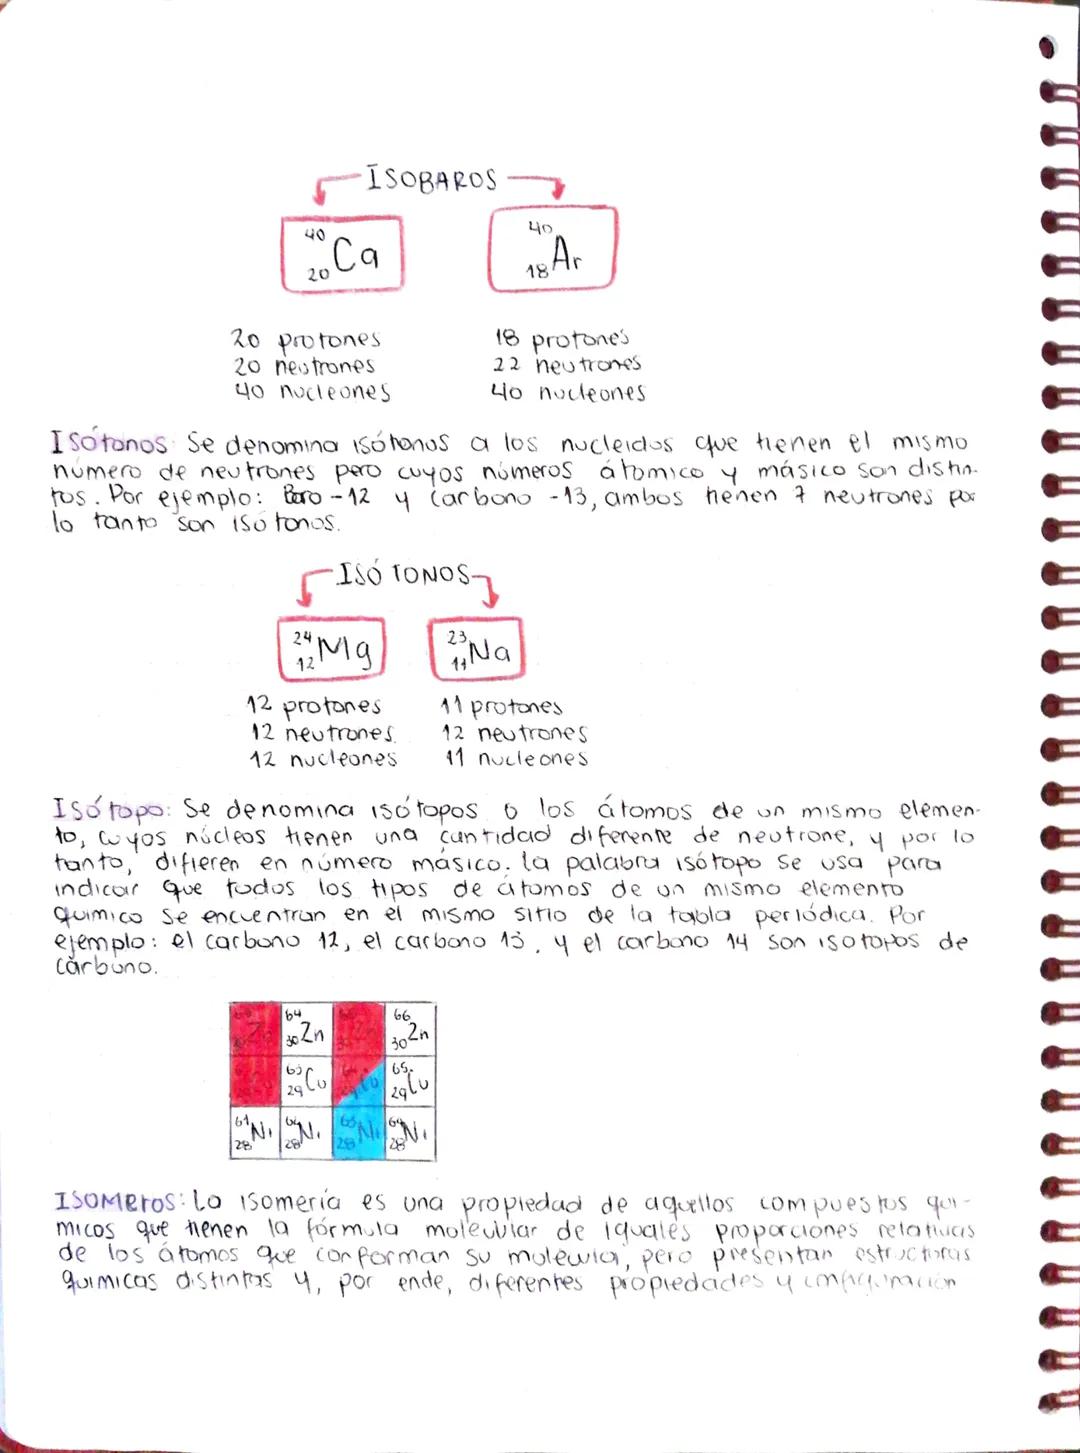 ISOBAROS
40 20 Ca 40 18 Ar
20 protones 18 protones
20 neutrones 22 neutrones
40 nucleones 40 nucleones
Isótonos: Se denomina isótonos a los nucleidos que tienen el mismo
número de neutrones pero cuyos números átomico y másico son distin-
tos. Por ejemplo: Boro -12 y Carbono -13, ambos tienen 7 neutrones por
lo tanto son isótonos.
ISÓTONOS
24 12 Mg 23 11 Na
12 protones 11 protones
12 neutrones. 12 neutrones
12 nucleones 11 nucleones
Isótopo: Se denomina isótopos o los átomos de un mismo elemen-
to, cuyos núcleos tienen una cantidad diferente de neutrone, y por lo
tanto, difieren en número másico. la palabra isótopo se usa para
indicar que todos los tipos de átomos de un mismo elemento
químico se encuentran en el mismo sitio de la tabla periódica. Por
ejemplo: el carbono 12, el carbono 13, y el carbono 14 son isotopos de
carbono.
64 30 Zn 66 30 Zn
63 29 Cu 65 29 Cu
61 28 Ni 28 Ni 63 28 Ni 64 28 Ni
ISOMEROS: La isomería es una propiedad de aquellos compuestos quí-
micos que tienen la fórmula molecular de iguales proporciones relativas
de los átomos que conforman su molecula, pero presentan estructuras
químicas distintas y, por ende, diferentes propiedades y configuración